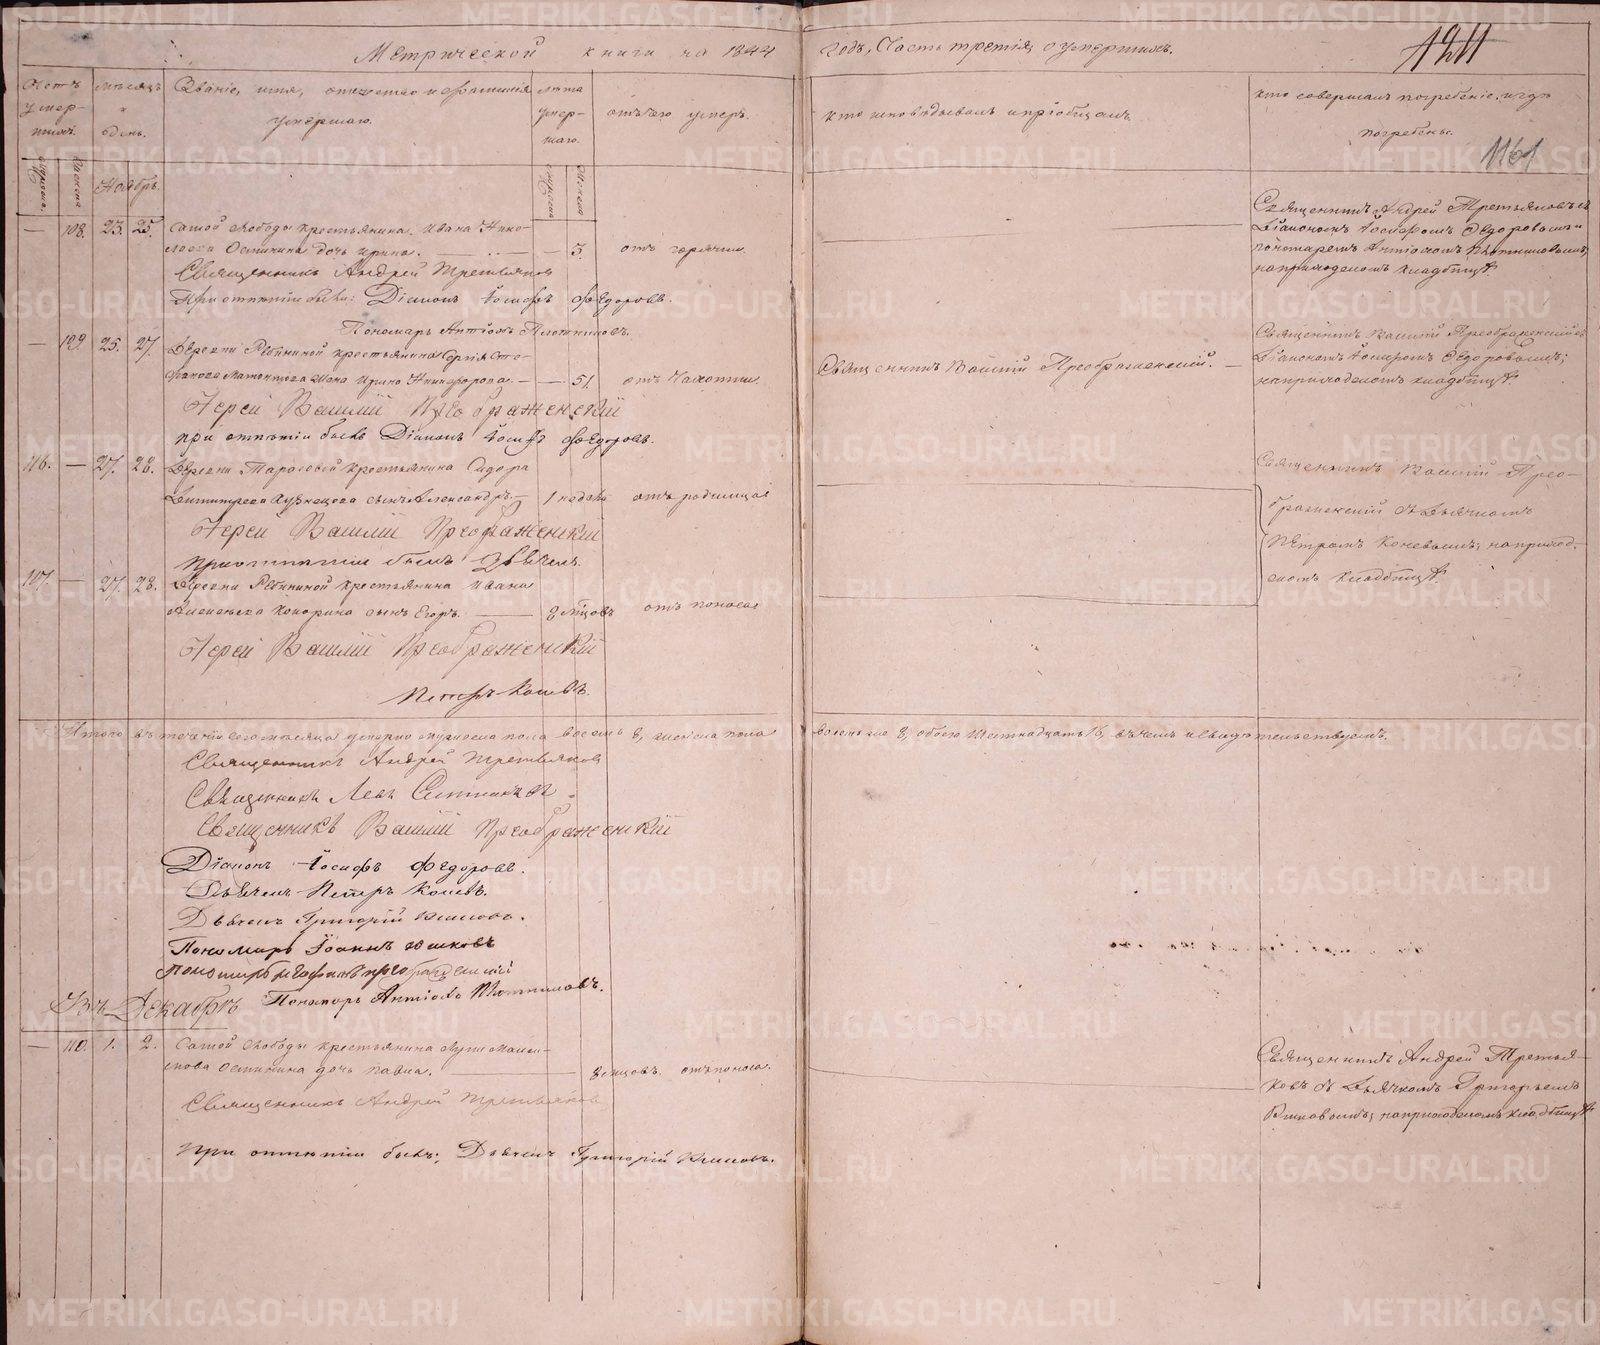 Метрической книги на 1844 годъ, Часть третія, о умершихъ.
1211
1161
Счетъ умер-шихъ.
Мѣсяцъ и день.
Званіе, имя, отчество и фамилія умершаго.
Лѣта умер-шаго.
отъ чего умеръ.
кто исповѣдывалъ и пріобщалъ.
кто совершалъ погребеніе, и гдѣ погребенъ.
Ноябрь.
— 108. 23. 25. Самой слободы крестьянина Ивана Нико-
лаева Остинина дочь Ирина. — — 3. отъ горячки.
Священникъ Андрей Третьяковъ съ
Діакономъ Іосифомъ Ѳедоровымъ и
пономаремъ Антіохомъ Плотниковымъ,
на приходскомъ кладбищѣ.
Священникъ Андрей Третьяковъ
При отпѣтіи были: Діаконъ Іосифъ Ѳедоровъ.
Пономарь Антіохъ Плотниковъ.
— 109. 25. 27. Деревни Рѣпкиной крестьянина Сергія Сте-
фанова жена Ирина Никифорова. — — 51. отъ чахотки.
Священникъ Василій Преображенскій. —
Священникъ Василій Преображенскій съ
Діакономъ Іосифомъ Ѳедоровымъ;
на приходскомъ кладбищѣ.
Іерей Василій Преображенскій
при отпѣтіи былъ Діаконъ Іосифъ Ѳедоровъ.
106. — 27. 28. Деревни Тарасовой крестьянина Сидора
Димитріева Кузнецова сынъ Александръ. — 1 недѣли отъ родимца
Священникъ Василій Прео-
браженскій съ Дьячкомъ
Петромъ Коневымъ, на приход-
скомъ кладбищѣ.
Іерей Василій Преображенскій
При отпѣтіи былъ Дьячекъ
107. — 27. 28. Деревни Рѣпкиной крестьянина Ивана
сынъ Егоръ. — 8 мѣсяцовъ отъ поноса
Іерей Василій Преображенскій
Петръ Коневъ.
Итого въ теченіи сего мѣсяца умерло мужеска пола восемь 8, женска пола восемь же 8, обоего шестнадцать 16, въ чемъ и свидѣтельствуемъ.
Священникъ Андрей Третьяковъ
Священникъ Левъ
Священникъ Василій Преображенскій
Діаконъ Іосифъ Ѳедоровъ.
Дьячекъ Петръ Коневъ.
Дьячекъ Григорій
Пономарь Іоаннъ
Пономарь Стефанъ Преображенскій
Пономарь Антіохъ Плотниковъ.
Въ Декабрѣ
— 110. 1. 2. Самой слободы крестьянина Луки Макси-
мова Остинина дочь Павла. — 8 мѣсяцовъ. отъ поноса.
Священникъ Андрей Третья-
ковъ съ Дьячкомъ Григорьемъ
на приходскомъ кладбищѣ
Священникъ Андрей Третьяковъ
При отпѣтіи былъ: Дьячекъ Григорій
METRIKI.GASO-URAL.RU